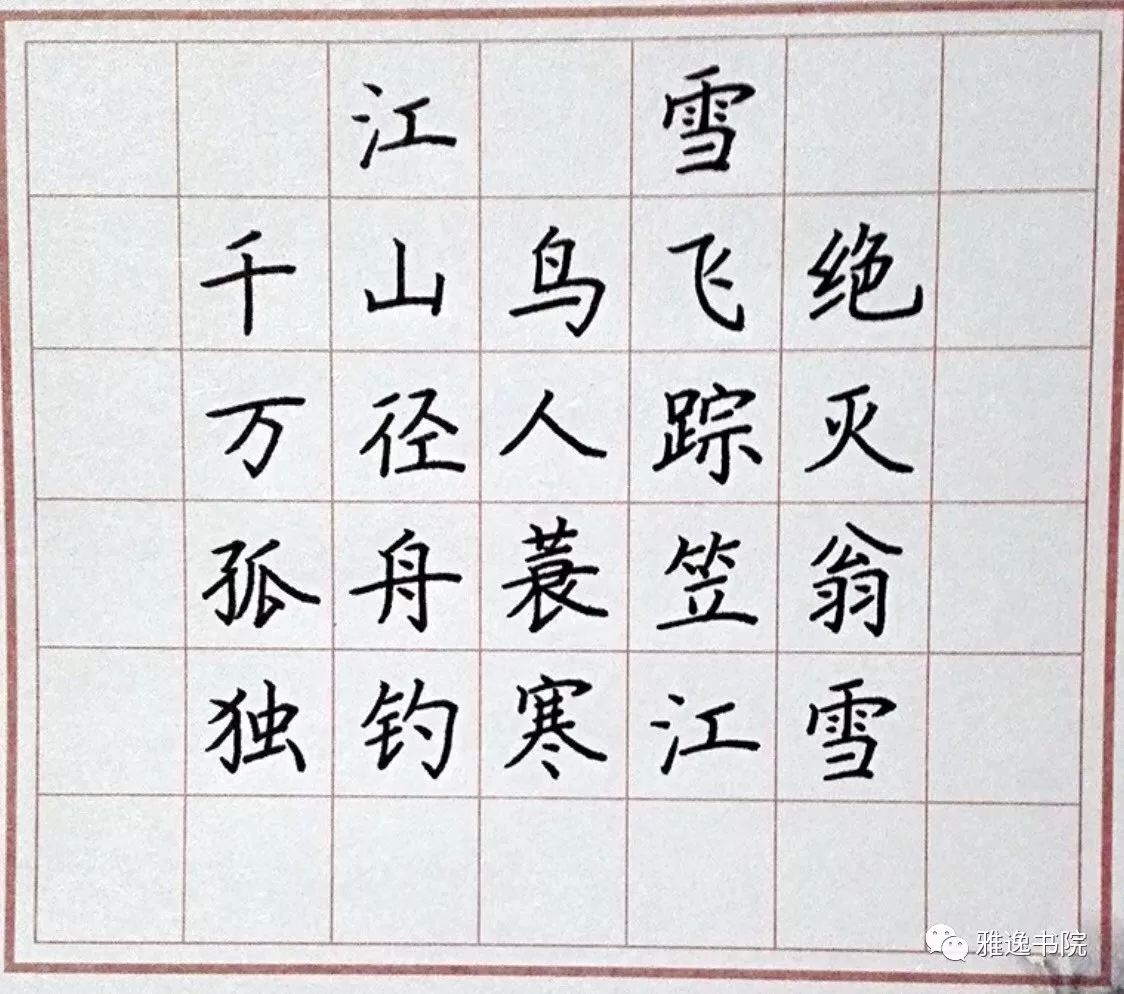 江雪
千山鸟飞绝
万径人踪灭
孤舟蓑笠翁
独钓寒江雪
雅逸书院